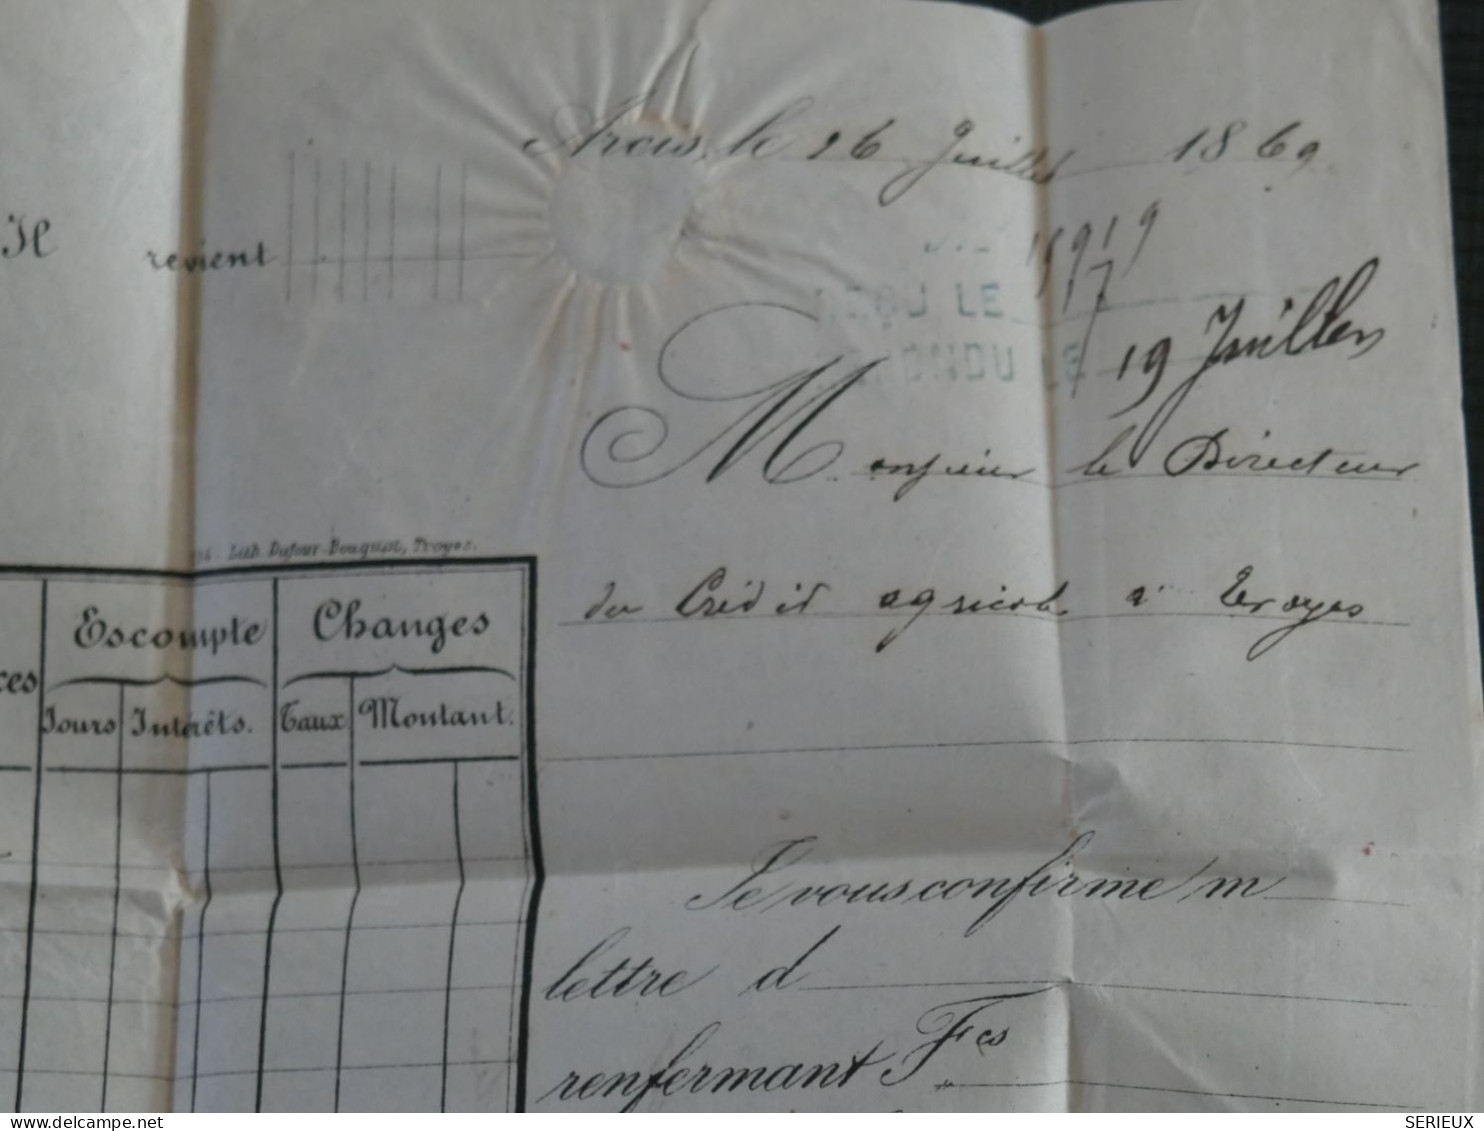 Arcis, le 16 Juillet 1869
Il revient
REÇU LE 17
RÉPONDU LE 19 Juillet
Monsieur le Directeur
du Crédit agricole à Troyes
Lith. Dufour-Bouquot, Troyes.
Escompte Changes
Jours Intérêts. Taux Montant.
Je vous confirme m
lettre d
renfermant Fcs
SERIEUX